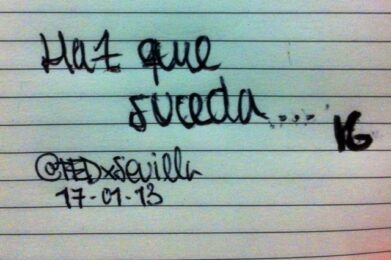 Haz que
suceda.....
IG
@TEDxSevilla
17-01-13